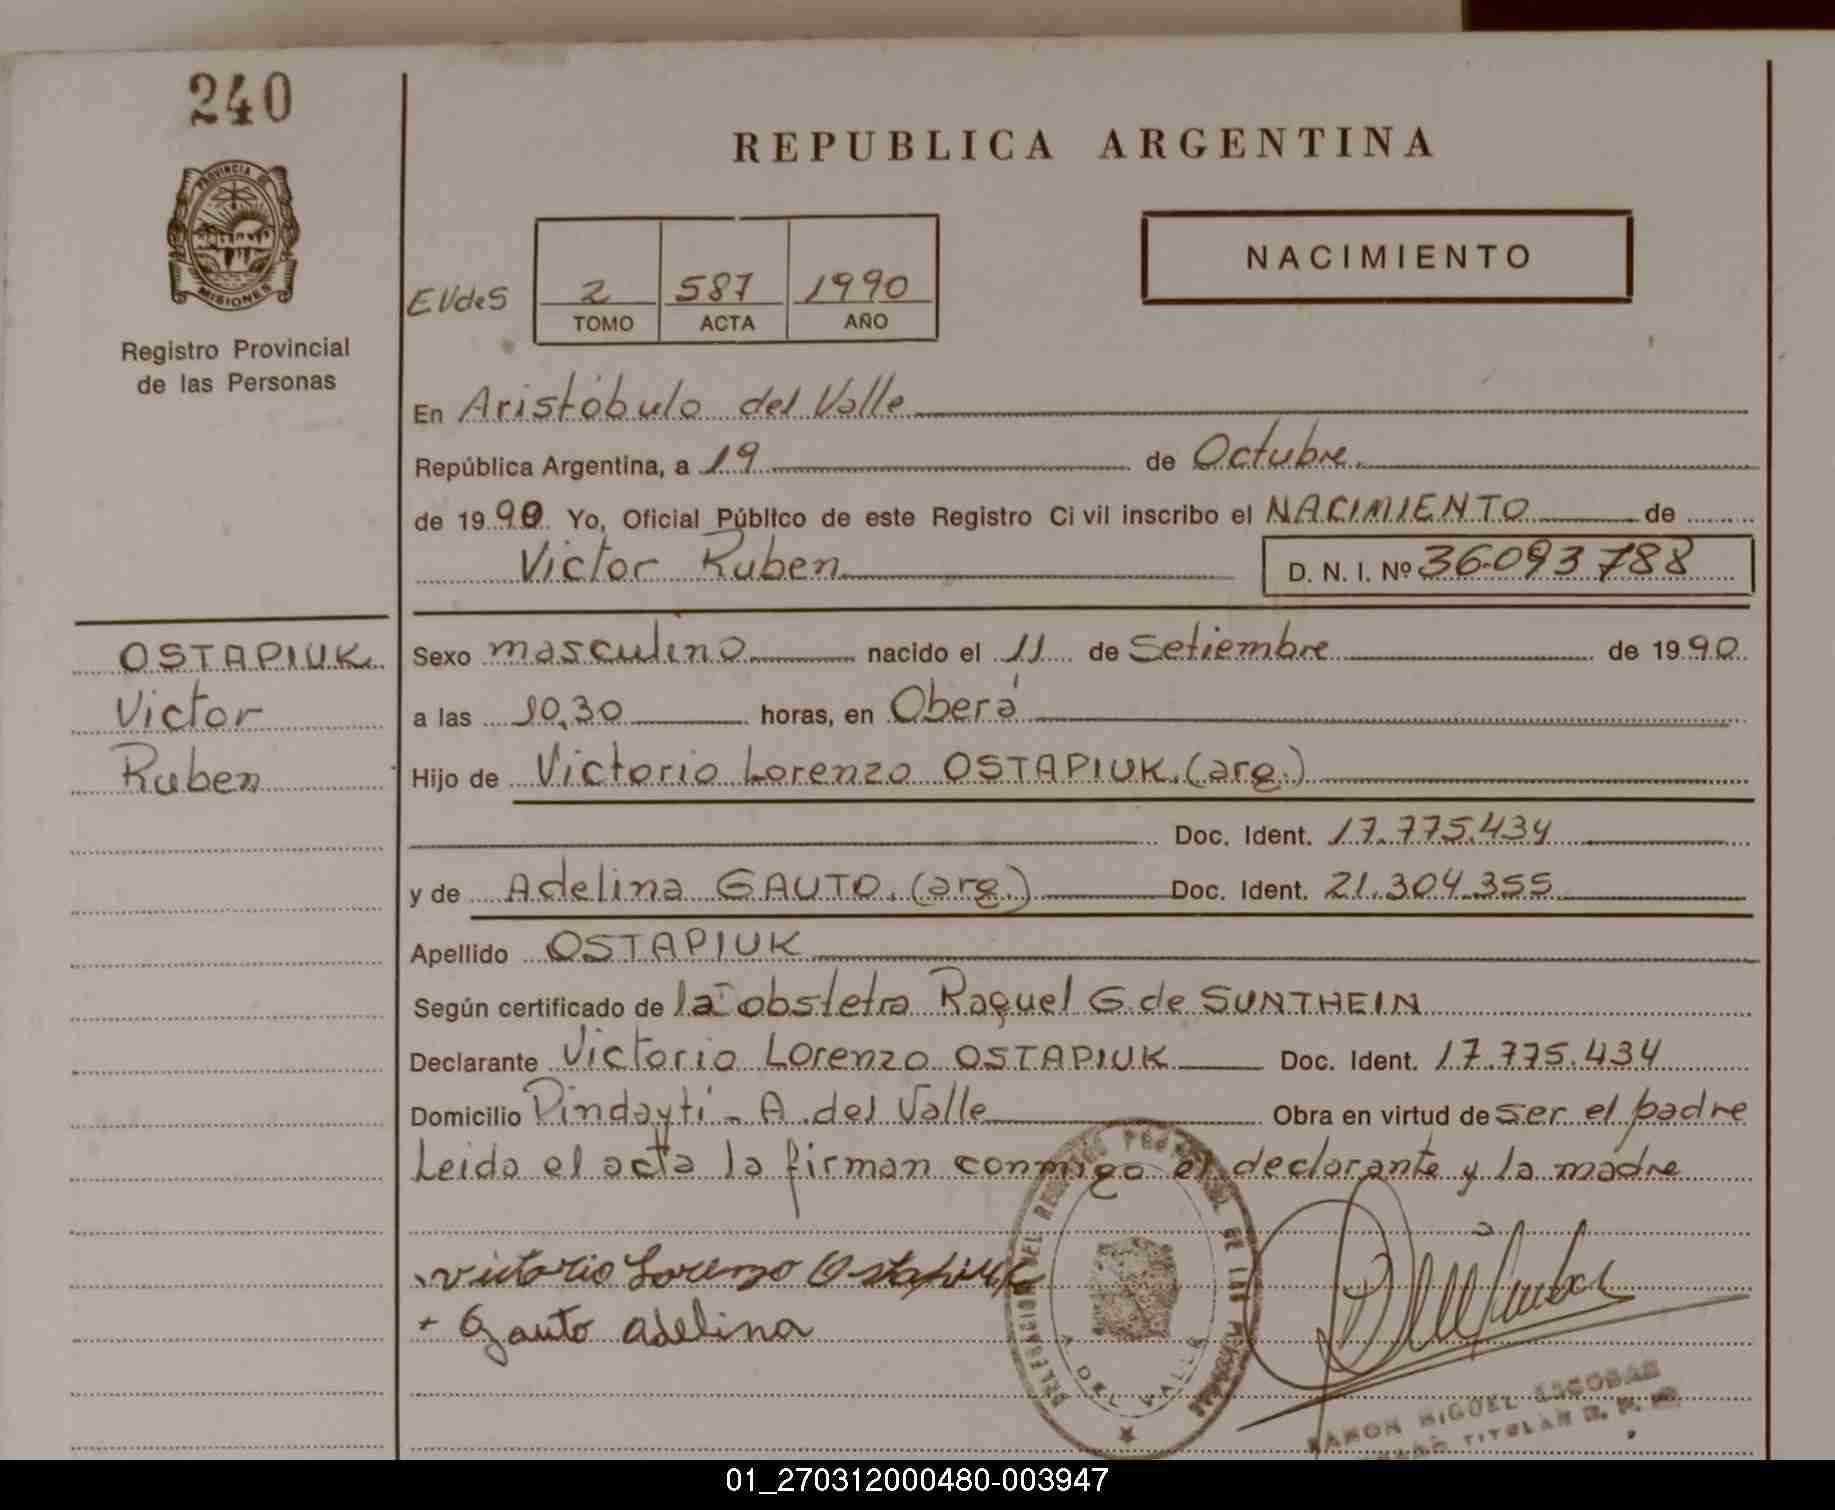 240
REPUBLICA ARGENTINA
PROVINCIA DE
MISIONES
Registro Provincial
de las Personas
NACIMIENTO
EVdeS
2 587 1990
TOMO ACTA AÑO
En Aristóbulo del Valle
República Argentina, a 19 de Octubre
de 1990. Yo, Oficial Público de este Registro Civil inscribo el NACIMIENTO de
Victor Ruben D. N. I. Nº 36.093788
OSTAPIUK
Victor
Ruben
Sexo masculino nacido el 11 de Setiembre de 1990
a las 10,30 horas, en Oberá
Hijo de Victorio Lorenzo OSTAPIUK (arg.)
Doc. Ident. 17.775.434
y de Adelina GAUTO (arg.) Doc. Ident. 21.304.355
Apellido OSTAPIUK
Según certificado de la obstetra Raquel G. de SUNTHEIN
Declarante Victorio Lorenzo OSTAPIUK Doc. Ident. 17.775.434
Domicilio Pindaytí - A. del Valle Obra en virtud de ser el padre
Leida el acta la firman conmigo el declarante y la madre
victorio Lorenzo Ostapiuk
+ Gauto adelina
DELEGACION DEL REGISTRO PROVINCIAL DE LAS PERSONAS
A. DEL VALLE
RAMON MIGUEL ESCOBAR
TITULAR
01_270312000480-003947